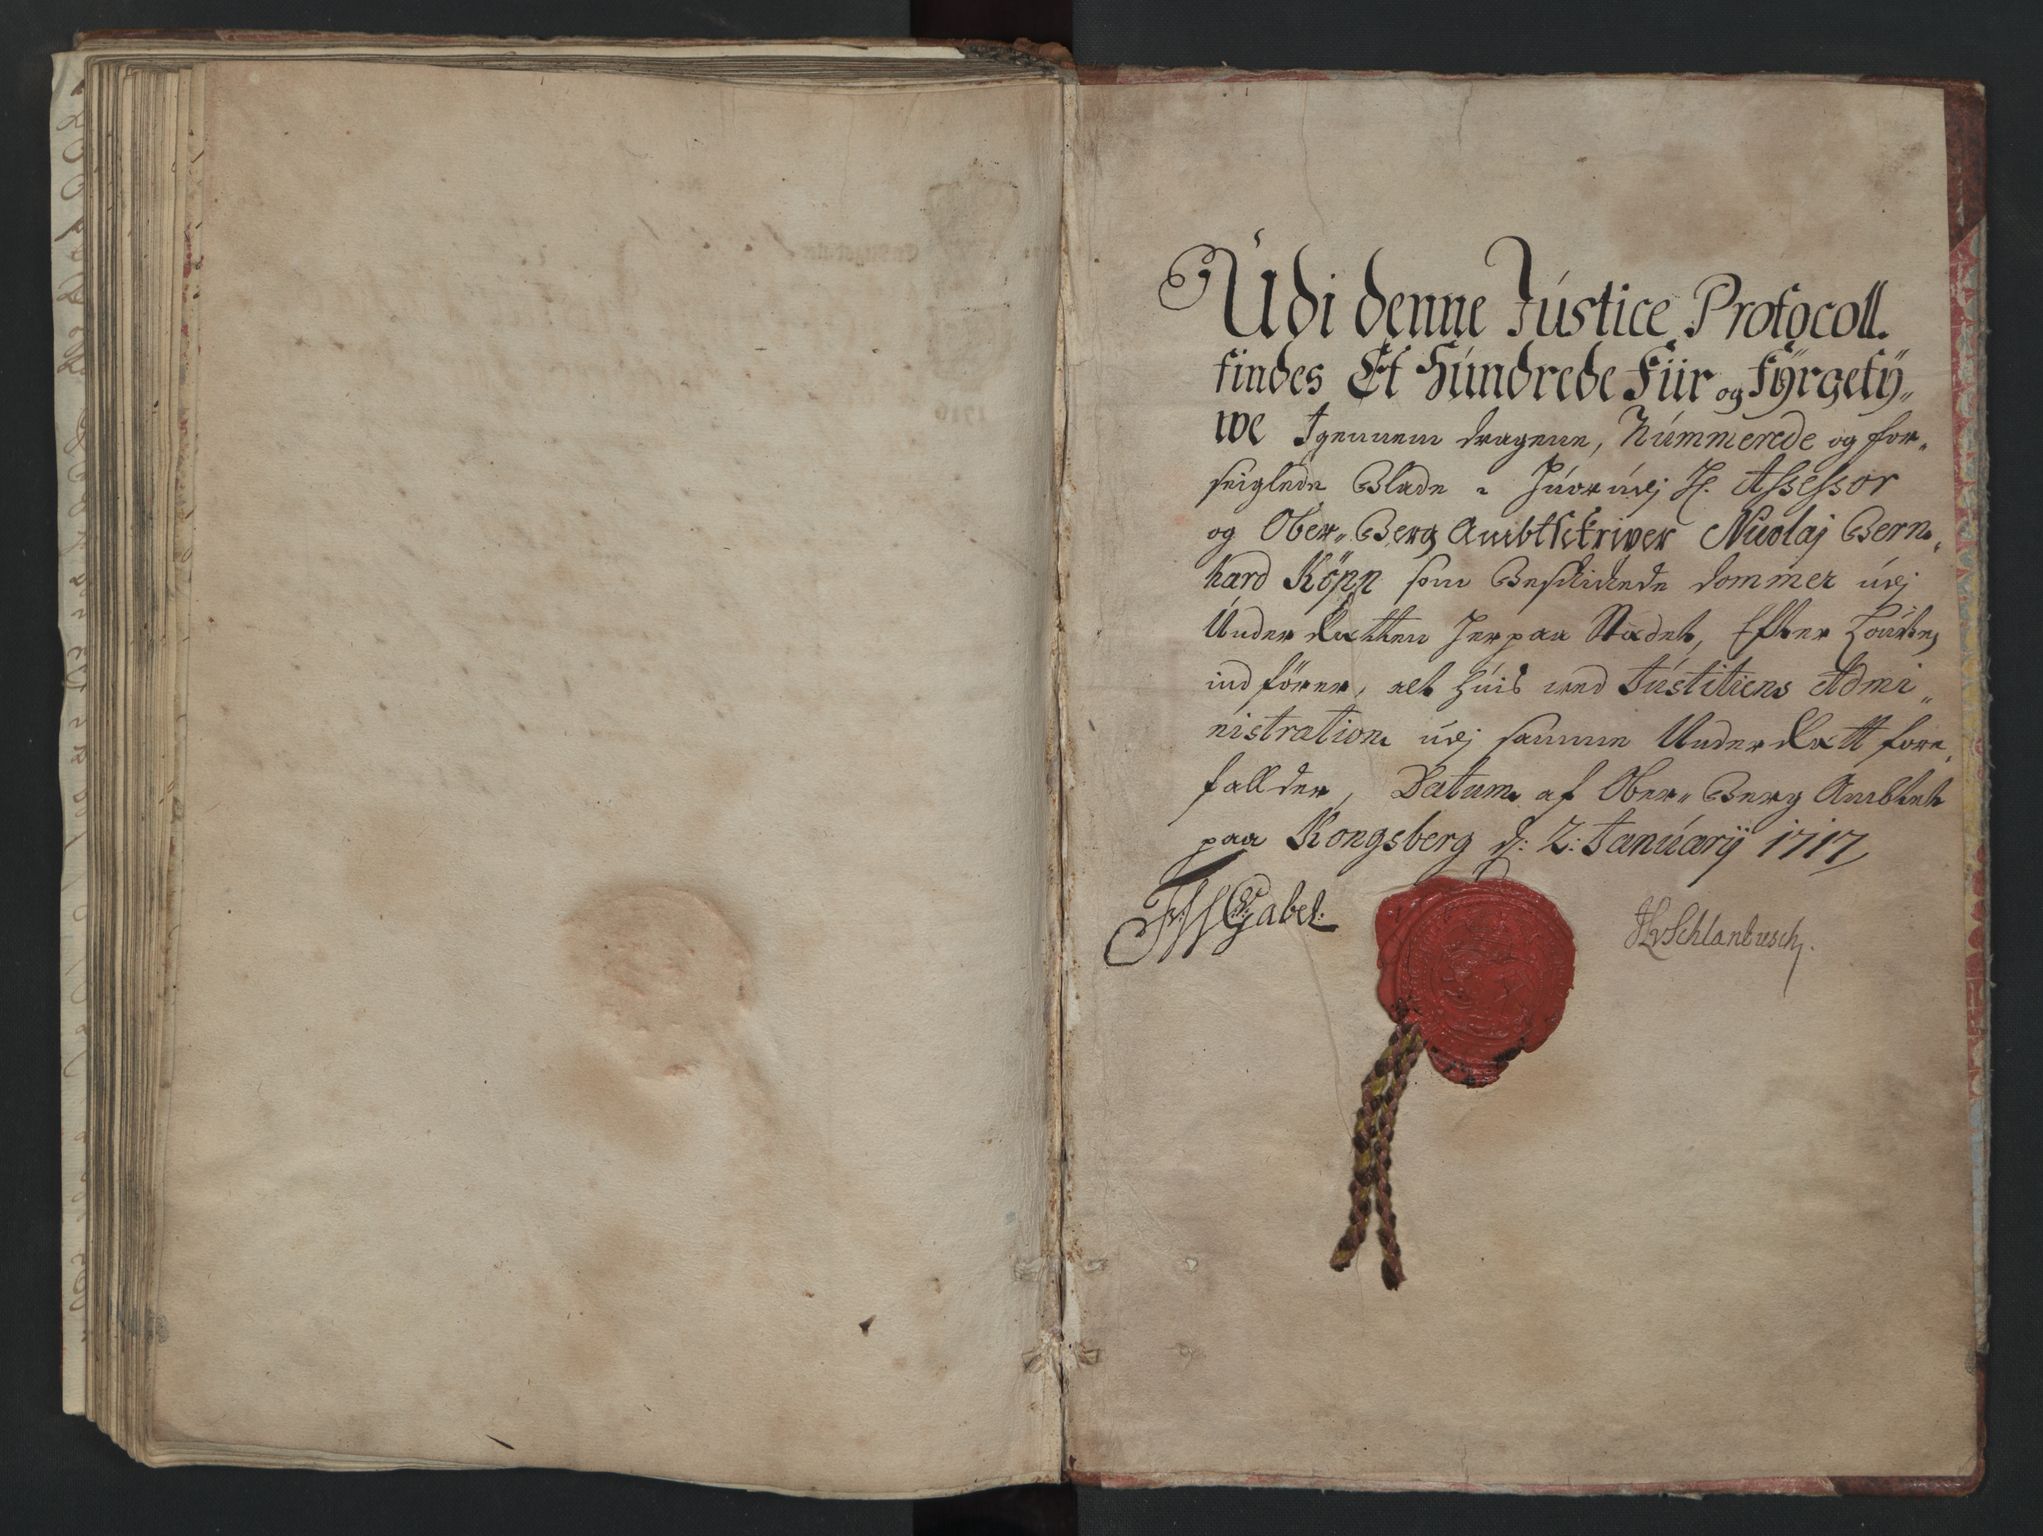 Udi denne Jústice Protocoll
findes Et Húndrede Fiir og Fÿrgetÿ„
we Igennem dragene, Númmerede og for„
seiglede Blade, Húorúdj H. Assessor
og Ober„ Berg Ambtskriver Nicolaj Bern„
hard Köpp som Beskickede dommer údj
Under Rætten herpaa Stædet, Efter Louven
indfører, alt húis ved Jústitiens Admi„
nistration údj samme Under Rætt fore„
fallder, Datum af Ober„ Berg Ambtet
paa Kongsberg d: 2: Janúarÿ 1717
FWGabel.
HvSchlanbusch.
1716